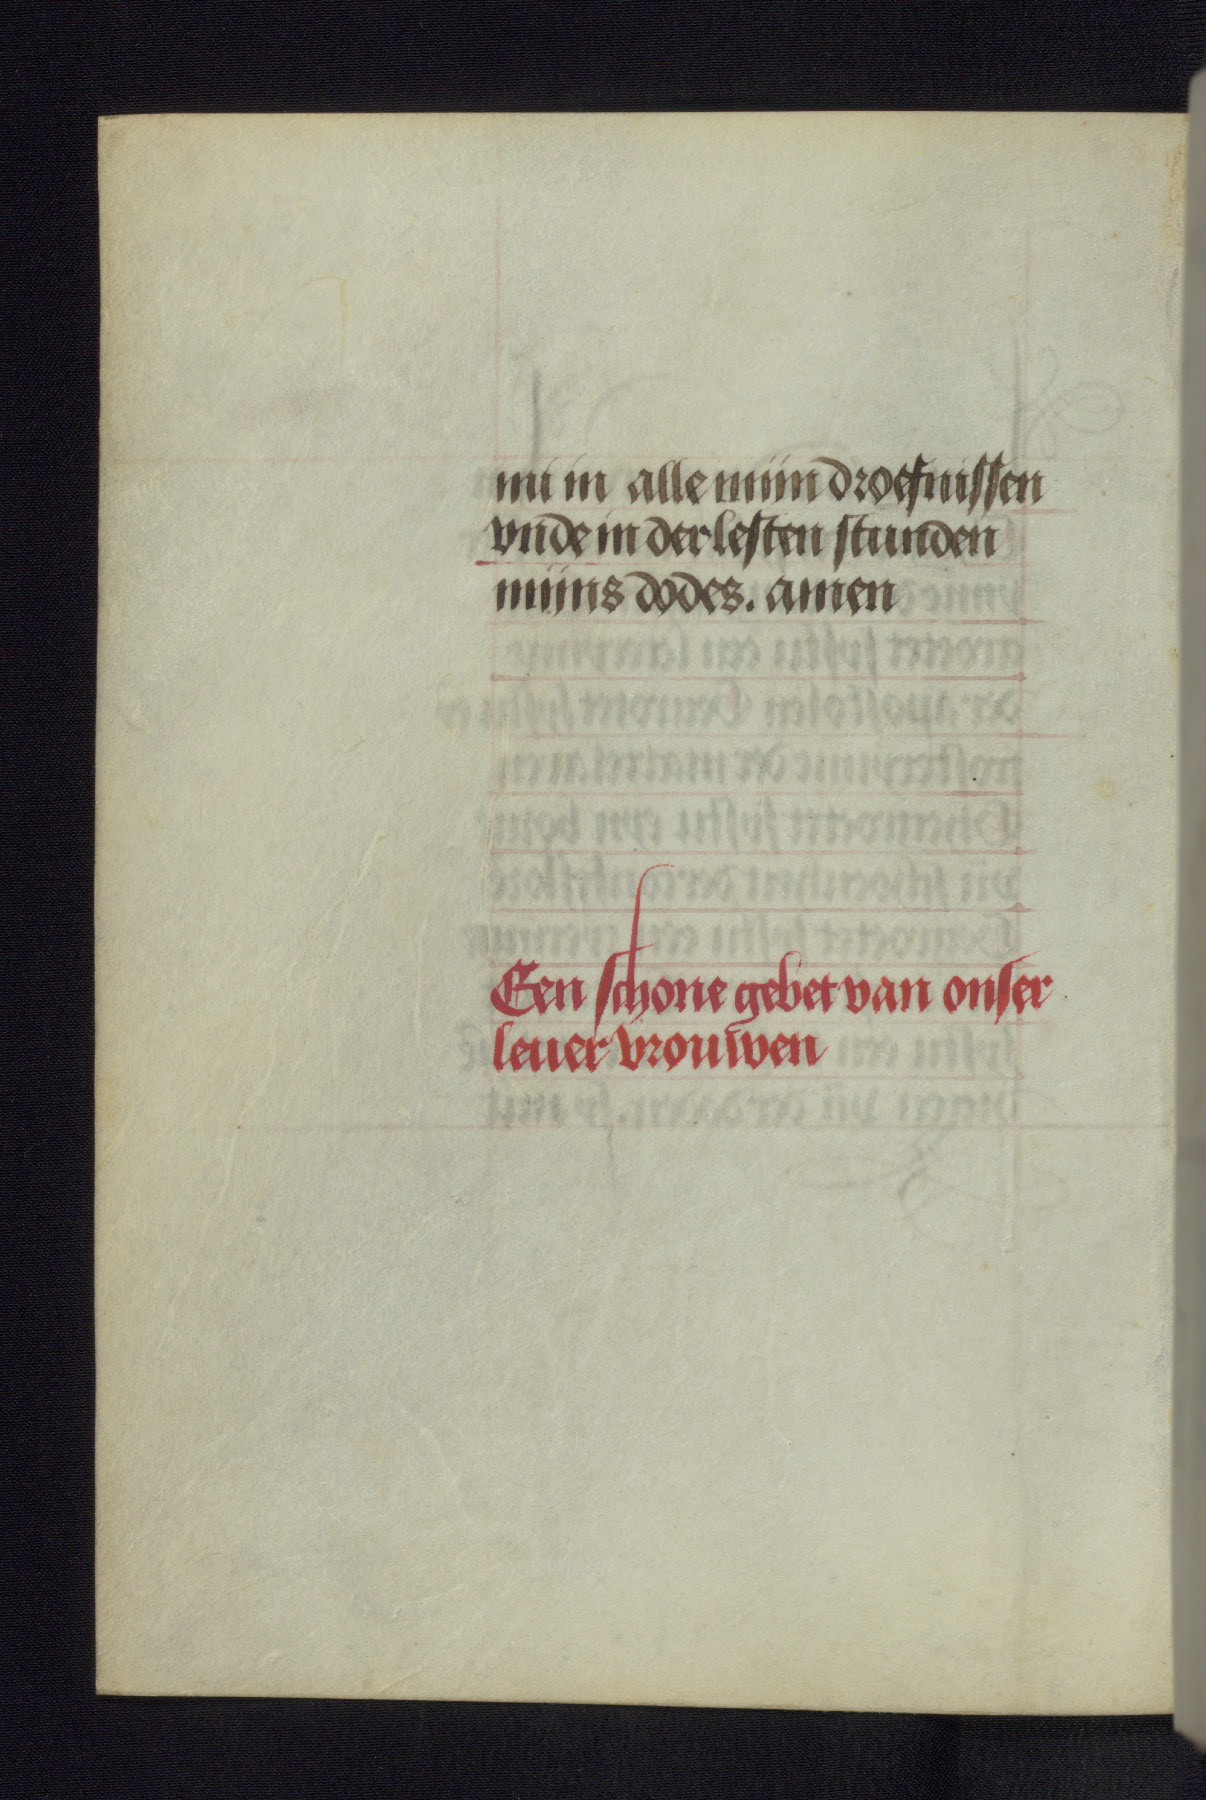 mi in alle mijn droefnissen
vnde in der lesten stunden
mijns dodes. amen
Een schone gebet van onser
leuer vrouwen